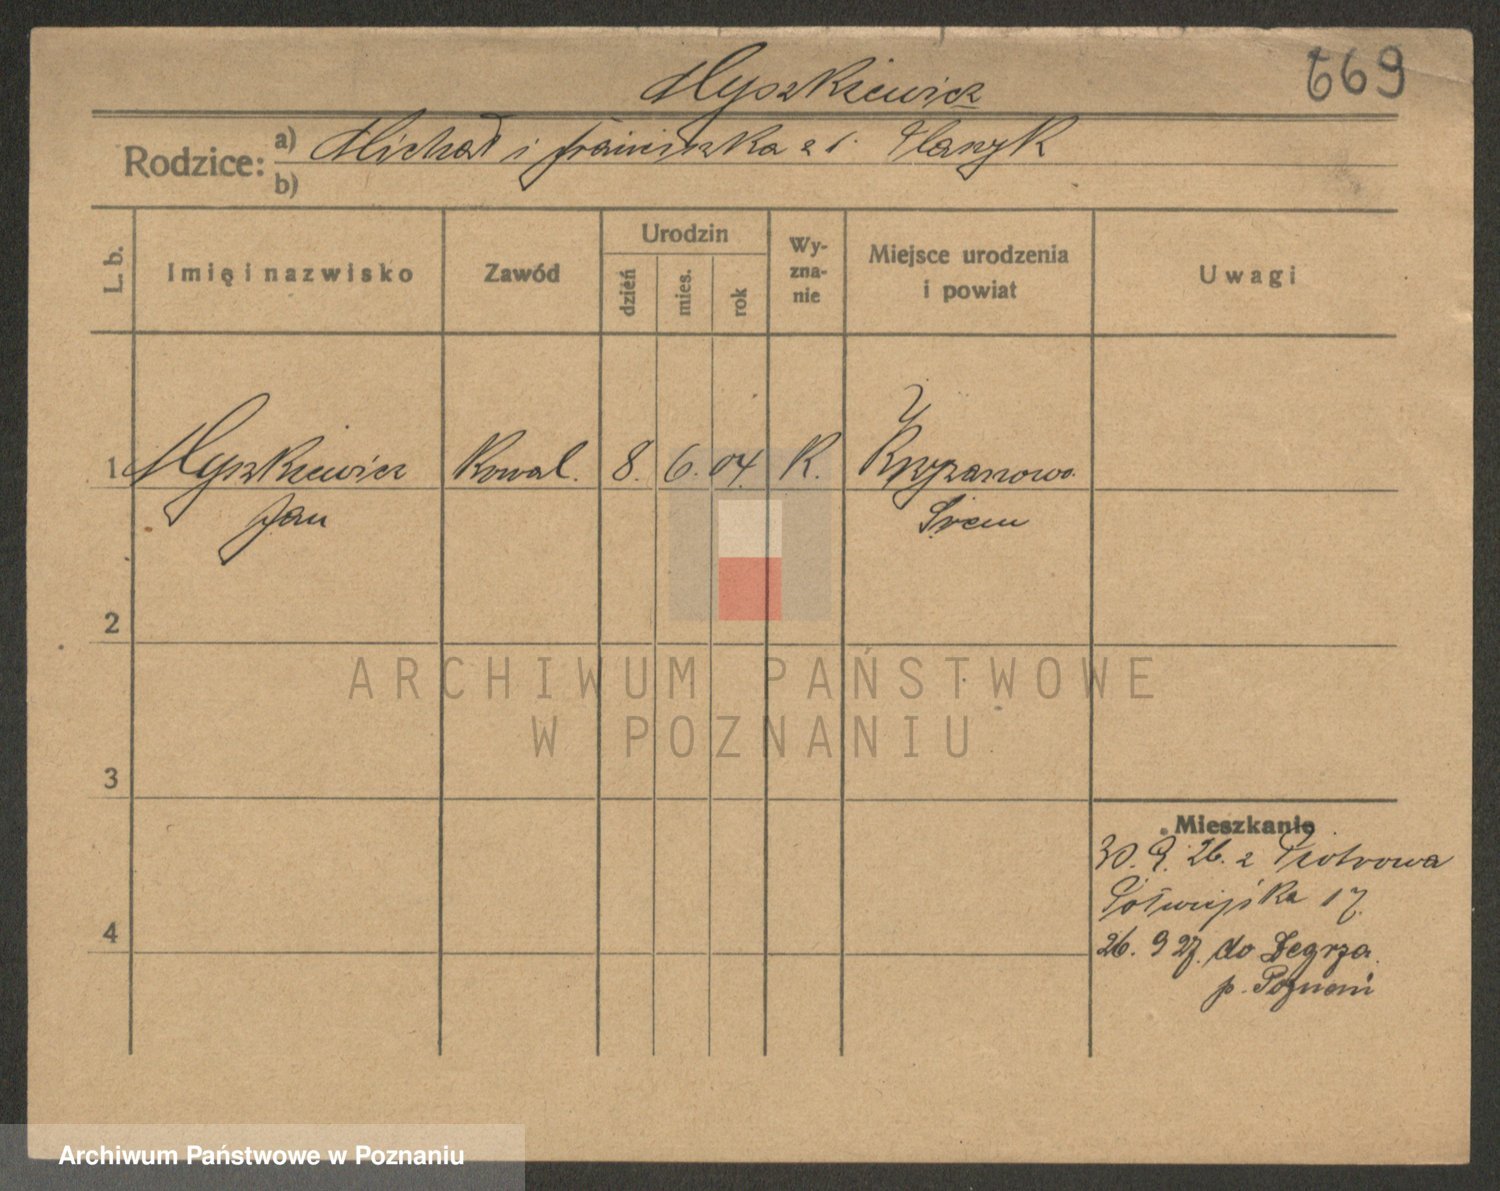 Myszkiewicz
669
Rodzice: a) Michał i Franciszka z d.
b)
L. b.
Imię i nazwisko
Zawód
Urodzin
dzień
mies.
rok
Wy-
zna-
nie
Miejsce urodzenia
i powiat
Uwagi
1 Myszkiewicz Kowal. 8. 6. 04. K. Krzyżanowo
Jan Śrem
2
ARCHIWUM PAŃSTWOWE
W POZNANIU
3
Mieszkanie
30. 9. 26. z Piotrowa
17.
4
26. 9 27. do Żegrza
p. Poznań
Archiwum Państwowe w Poznaniu